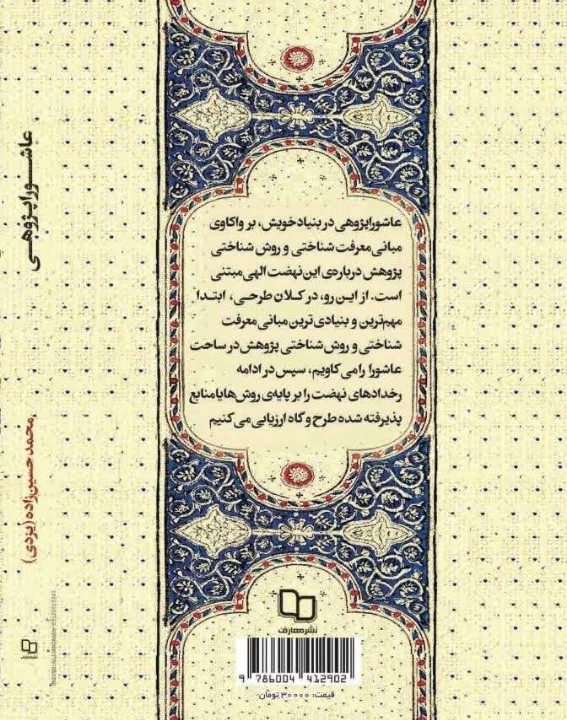 عاشوراپژوهی
محمد حسین‌زاده (یزدی)
عاشوراپژوهی در بنیاد خویش، بر واکاوی
مبانی معرفت شناختی و روش شناختی
پژوهش درباره‌ی این نهضت الهی مبتنی
است. از این رو، در کلان طرحی، ابتدا
مهم‌ترین و بنیادی ترین مبانی معرفت
شناختی و روش شناختی پژوهش در ساحت
عاشورا را می کاویم، سپس در ادامه
رخدادهای نهضت را بر پایه‌ی روش‌ها یا منابع
پذیرفته شده طرح و گاه ارزیابی می کنیم
نشر معارف
9 786004 412902
قیمت: ۳۰۰۰۰ تومان